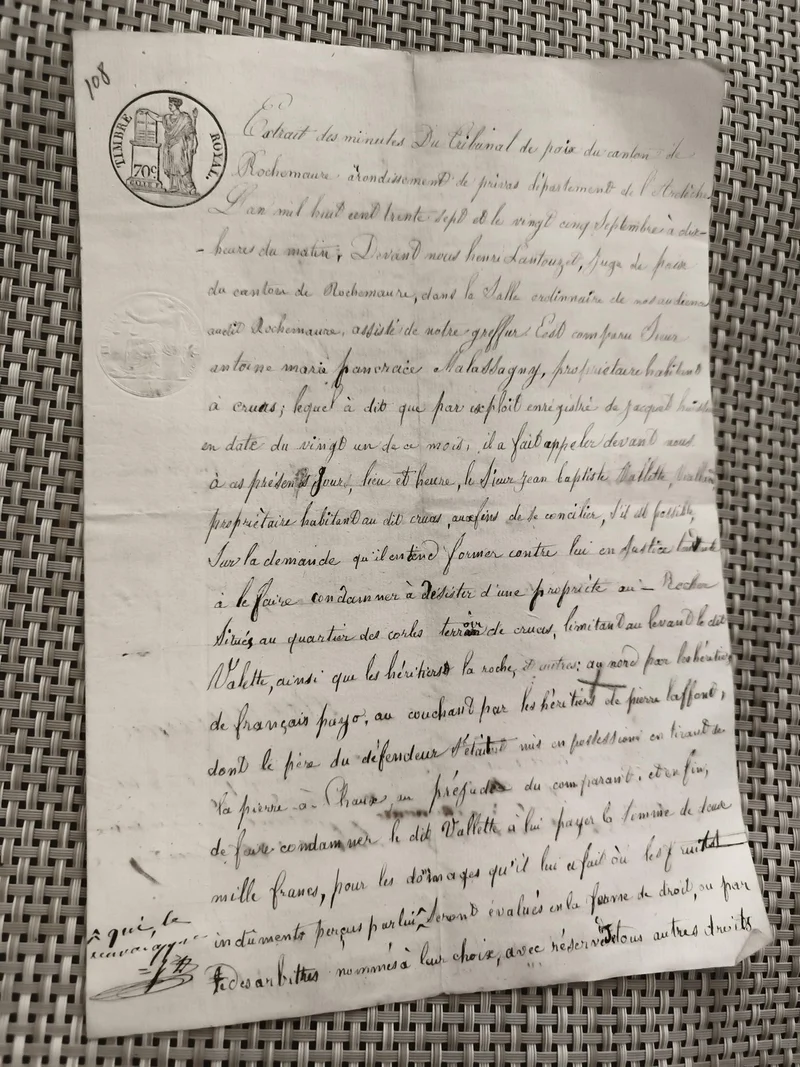 108
TIMBRE ROYAL.
70c
Extrait des minutes Du tribunal de paix du canton de
Rochemaure, arondissement de privas département de l'Ardèche
L'an mil huit cent trente sept et le vingt cinq Septembre à dix-
- heures du matin; Devant nous henri Lantouzet, Juge de paix
du canton de Rochemaure, dans la Salle ordinnaire de nos audiences
audit Rochemaure, assisté de notre greffier Est comparu Sieur
antoine marie pancrace Malassagny, propriétaire habitant
à cruas; lequel à dit que par exploit enregistré de huissier
en date du vingt un de ce mois, il a fait appeler devant nous
à ces présents Jour, lieu et heure, le Sieur Jean baptiste Vallette,
propriétaire habitant au dit cruas, aux fins de se concilier, s'il est possible,
Sur la demande qu'il entend former contre lui en Justice tendante
à le faire condamner à désister d'une propriété au - Rocher
Situés au quartier des corles terroir de cruas, limitant au levant le dit
Valette, ainsi que les héritiers la roche, et autres; au nord par les héritiers
de françois payo, au couchant par les héritiers de pierre laffont,
dont le père du défendeur S'était mis en possession en tirant de
la pierre à Chaux, au préjudice du comparant. et enfin,
de faire condamner le dit Vallette à lui payer la Somme de deux
mille francs, pour les domages qu'il lui a fait où les fruits
indûments perçus par lui, Seront évalués en la forme de droit, ou par
des arbitres nommés à leur choix, avec réserve de tous autres droits
^ qui, le